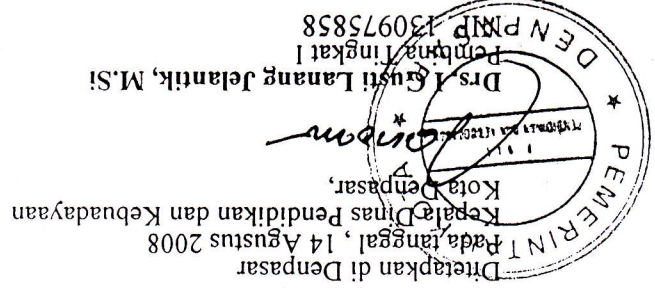 Ditetapkan di Denpasar
Pada tanggal , 14 Agustus 2008
Kepala Dinas Pendidikan dan Kebudayaan
Kota Denpasar,
Drs. I Gusti Lanang Jelantik, M.Si
Pembina Tingkat I
NIP 130975858
PEMERINTA
DENPA